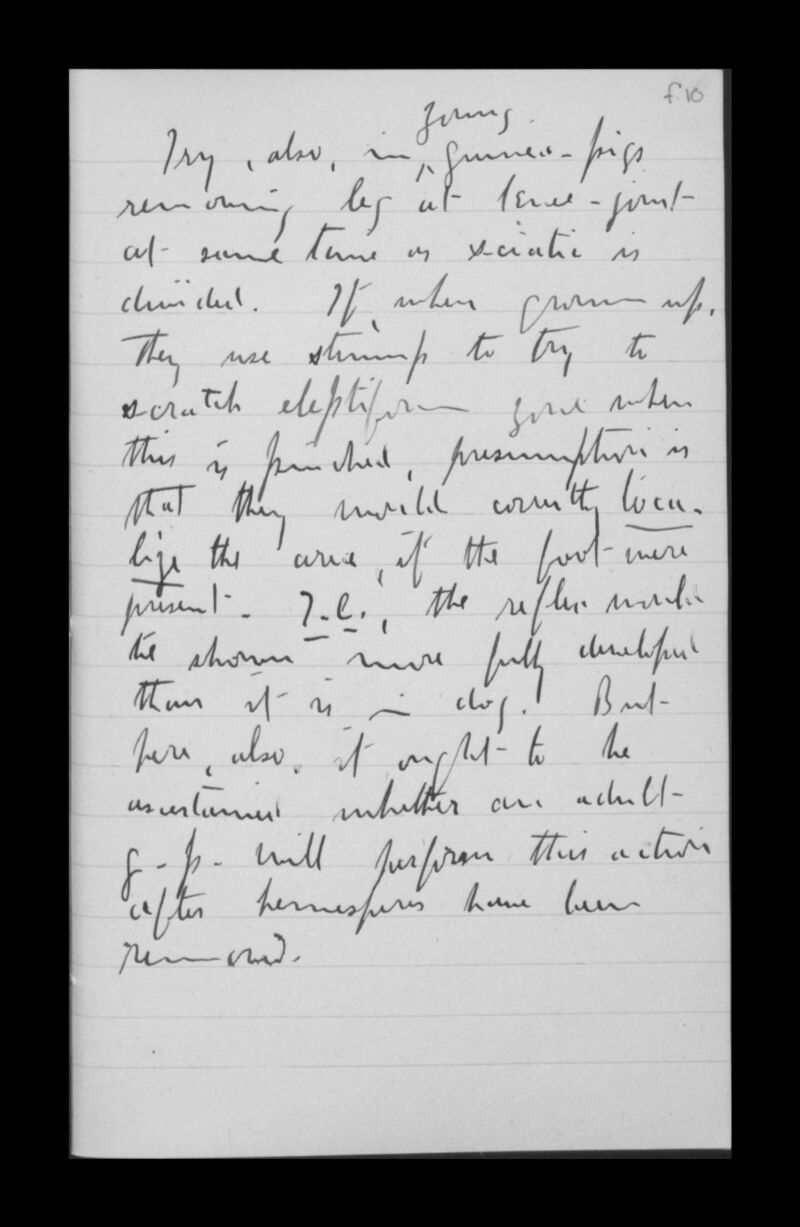 f.10
young
Try, also, in ‸ guinea-pigs
removing leg at knee-joint
at same time as sciatic is
divided. If, when grown up,
they use stump to try to
scratch eleptiform zone when
this is pinched, presumption is
that they would correctly loca-
lize the area, if the foot were
present. I.e., the reflex would
be shown more fully developed
than it is in dog. But
here, also, it ought to be
ascertained whether an adult
g-p- will perform this action
after hemespheres have been
removed.